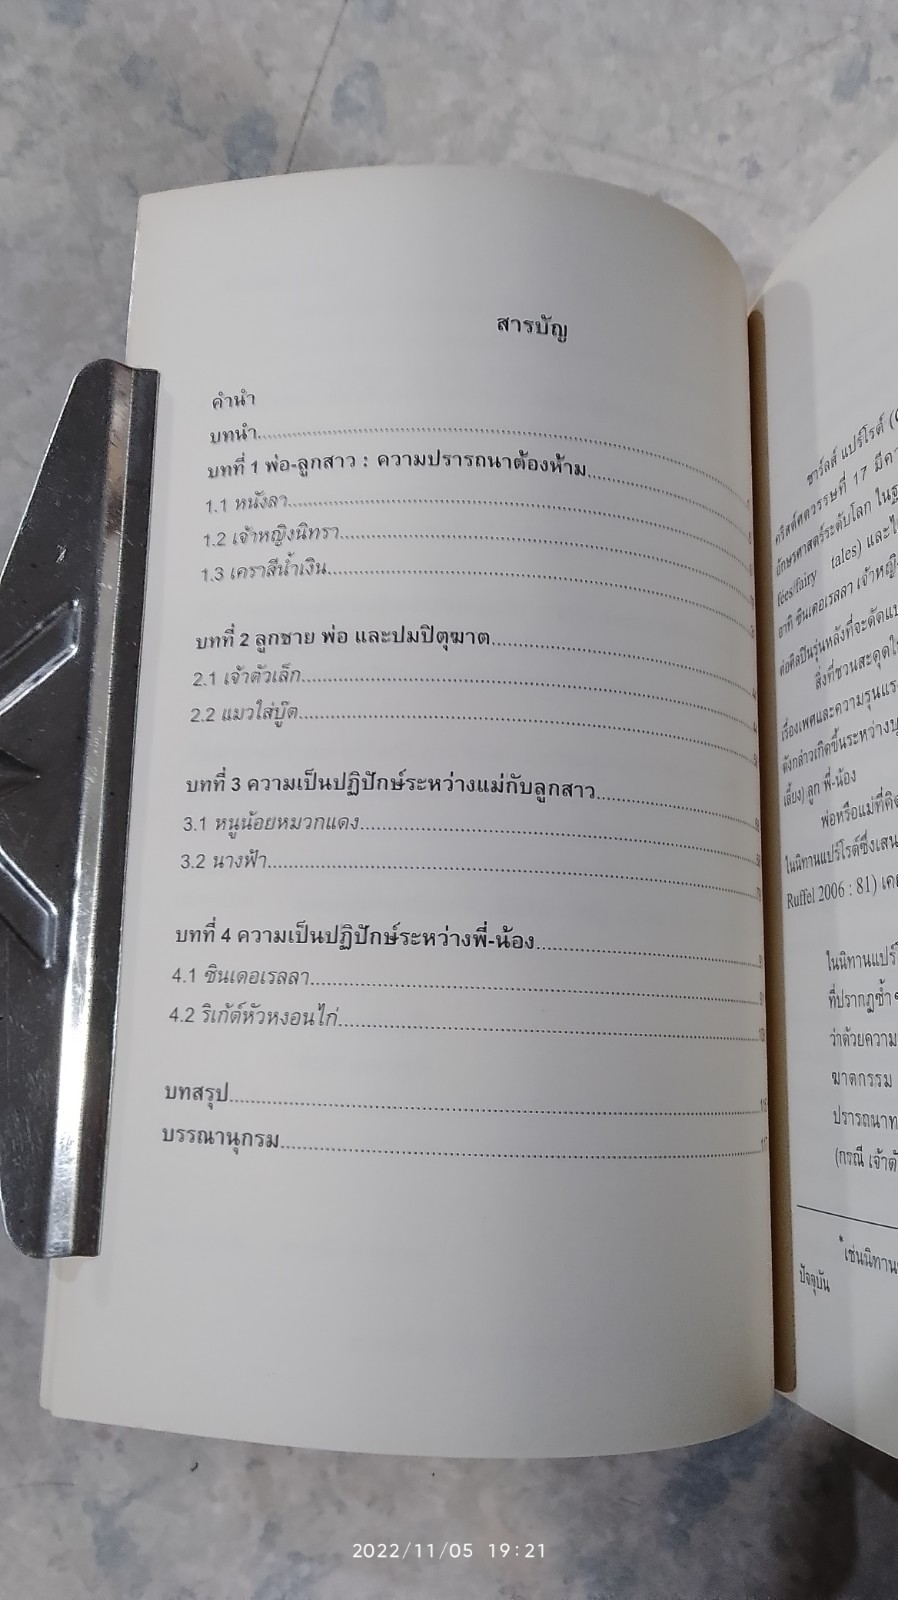 สารบัญ
คำนำ
บทนำ
บทที่ 1 พ่อ-ลูกสาว : ความปรารถนาต้องห้าม
1.1 หนังลา
1.2 เจ้าหญิงนิทรา
1.3 เคราสีน้ำเงิน
บทที่ 2 ลูกชาย พ่อ และปมปิตุฆาต
2.1 เจ้าตัวเล็ก
2.2 แมวใส่บู๊ต
บทที่ 3 ความเป็นปฏิปักษ์ระหว่างแม่กับลูกสาว
3.1 หนูน้อยหมวกแดง
3.2 นางฟ้า
บทที่ 4 ความเป็นปฏิปักษ์ระหว่างพี่-น้อง
4.1 ซินเดอเรลลา
4.2 ริเก้ต์หัวหงอนไก่
บทสรุป
บรรณานุกรม
ชาร์ลส์ แปร์โรต์
คริสต์ศตวรรษที่ 17 มีความ
อักษรศาสตร์ระดับโลก ในฐ
fées/fairy tales) และได้
อาทิ ซินเดอเรลลา เจ้าหญิง
ต่อศิลปินรุ่นหลังที่จะดัดแป
สิ่งที่ชวนสะดุดใ
เรื่องเพศและความรุนแรง
ดังกล่าวเกิดขึ้นระหว่างบุ
เลี้ยง) ลูก พี่-น้อง
พ่อหรือแม่ที่คิด
ในนิทานแปร์โรต์ซึ่งเสน
Ruffel 2006 : 81)
ในนิทานแปร์โ
ที่ปรากฏซ้ำ
ว่าด้วยความ
ฆาตกรรม
ปรารถนาท
(กรณี เจ้าตั
*เช่นนิทาน
ปัจจุบัน
2022/11/05 19:21